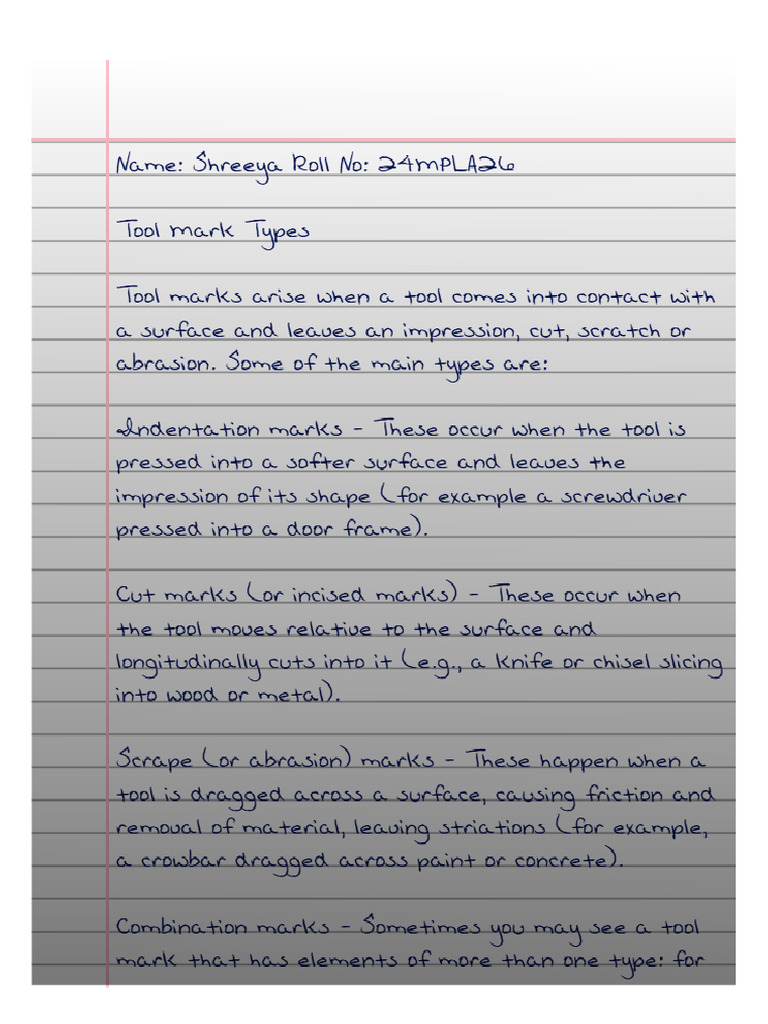 Name: Shreeya Roll No: 24MPLA26
Tool mark Types
Tool marks arise when a tool comes into contact with
a surface and leaves an impression, cut, scratch or
abrasion. Some of the main types are:
Indentation marks - These occur when the tool is
pressed into a softer surface and leaves the
impression of its shape (for example a screwdriver
pressed into a door frame).
Cut marks (or incised marks) - These occur when
the tool moves relative to the surface and
longitudinally cuts into it (e.g., a knife or chisel slicing
into wood or metal).
Scrape (or abrasion) marks - These happen when a
tool is dragged across a surface, causing friction and
removal of material, leaving striations (for example,
a crowbar dragged across paint or concrete).
Combination marks - Sometimes you may see a tool
mark that has elements of more than one type: for